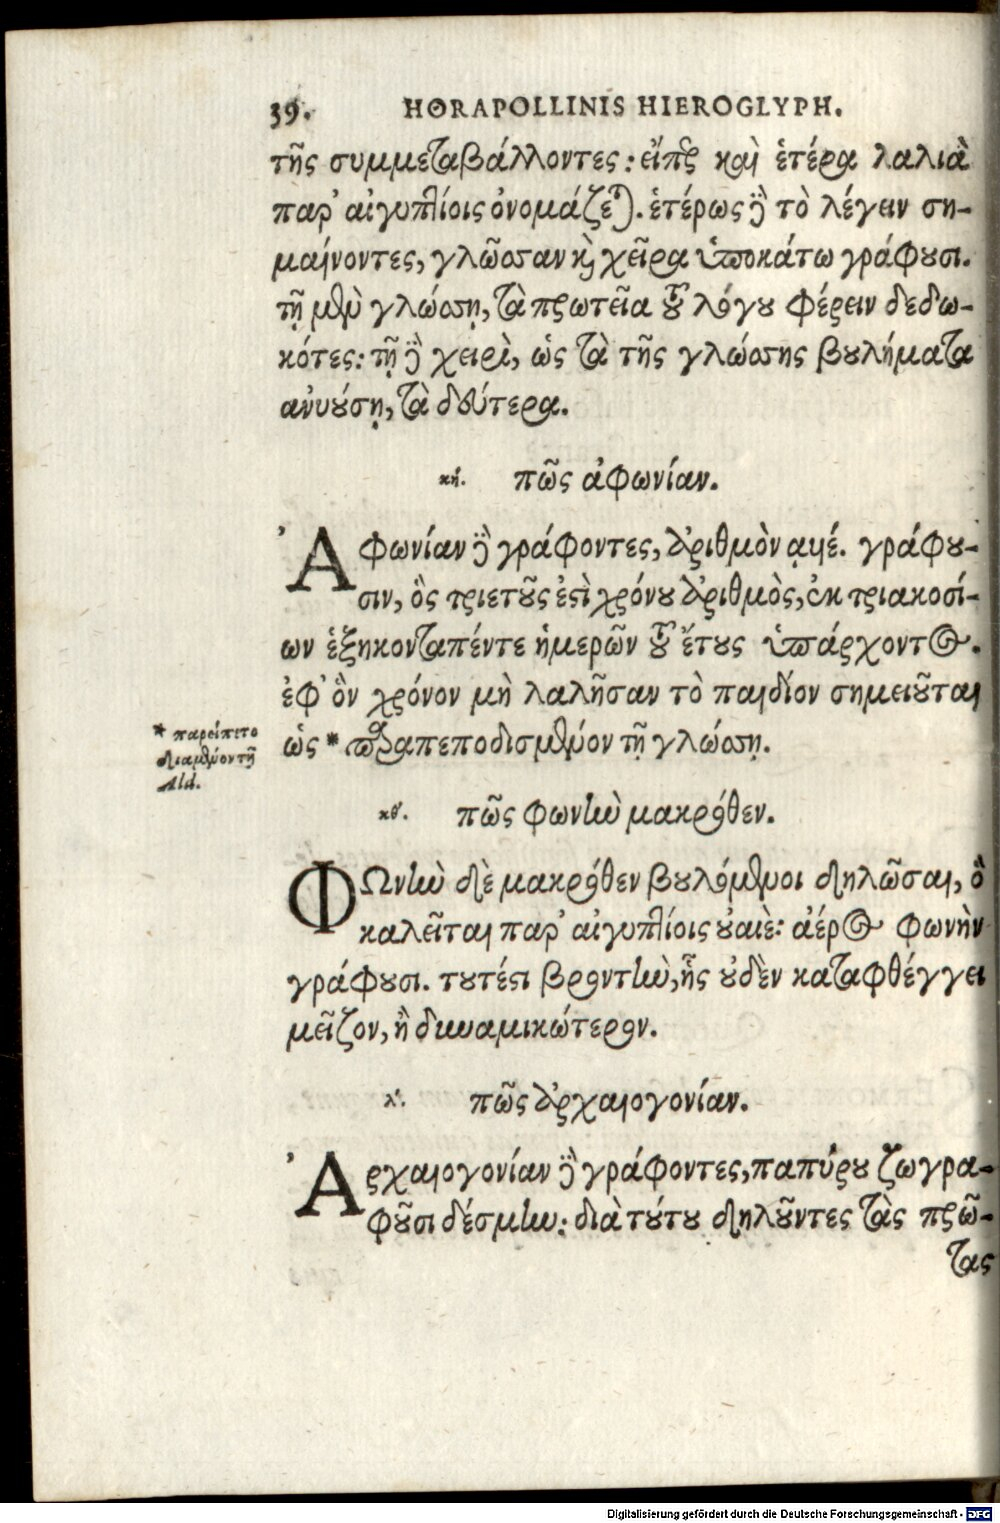 39. HORAPOLLINIS HIEROGLYPH.
τῆς συμμεταβάλλοντες: εἴπερ καὶ ἑτέρα λαλιὰ
παρ' αἰγυπτίοις ὀνομάζεται. ἑτέρως δὲ τὸ λέγειν ση-
μαίνοντες, γλῶσσαν καὶ χεῖρα ὑποκάτω γράφουσι.
τῇ μὲν γλώσσῃ, τὰ πρωτεῖα τοῦ λόγου φέρειν δεδω-
κότες: τῇ δὲ χειρὶ, ὡς τὰ τῆς γλώσσης βουλήματα
ανυούσῃ, τὰ δεύτερα.
κή. πῶς ἀφωνίαν.
Ἀφωνίαν δὲ γράφοντες, ἀριθμὸν ͵αϟέ. γράφου-
σιν, ὃς τριετοῦς ἐστὶ χρόνου ἀριθμὸς, ἐκ τριακοσί-
ων ἑξηκονταπέντε ἡμερῶν τοῦ ἔτους ὑπάρχοντος.
ἐφ' ὃν χρόνον μὴ λαλῆσαν τὸ παιδίον σημειοῦται
ὡς * παραπεποδισμένον τῇ γλώσσῃ.
* παρείπετο
διαμένον τῇ
Ald.
κθ'. πῶς φωνὴν μακρόθεν.
ΦΩνὴν δὲ μακρόθεν βουλόμενοι δηλῶσαι, ὃ
καλεῖται παρ' αἰγυπτίοις οὐαιὲ: ἀέρος φωνὴν
γράφουσι. τουτέστι βροντὴν, ἧς οὐδὲν καταφθέγγει
μεῖζον, ἢ δυναμικώτερον.
λ'. πῶς ἀρχαιογονίαν.
Ἀρχαιογονίαν δὲ γράφοντες, παπύρου ζωγρα-
φοῦσι δέσμην: διὰ τούτου δηλοῦντες τὰς πρώ-
τας
Digitalisierung gefördert durch die Deutsche Forschungsgemeinschaft - DFG